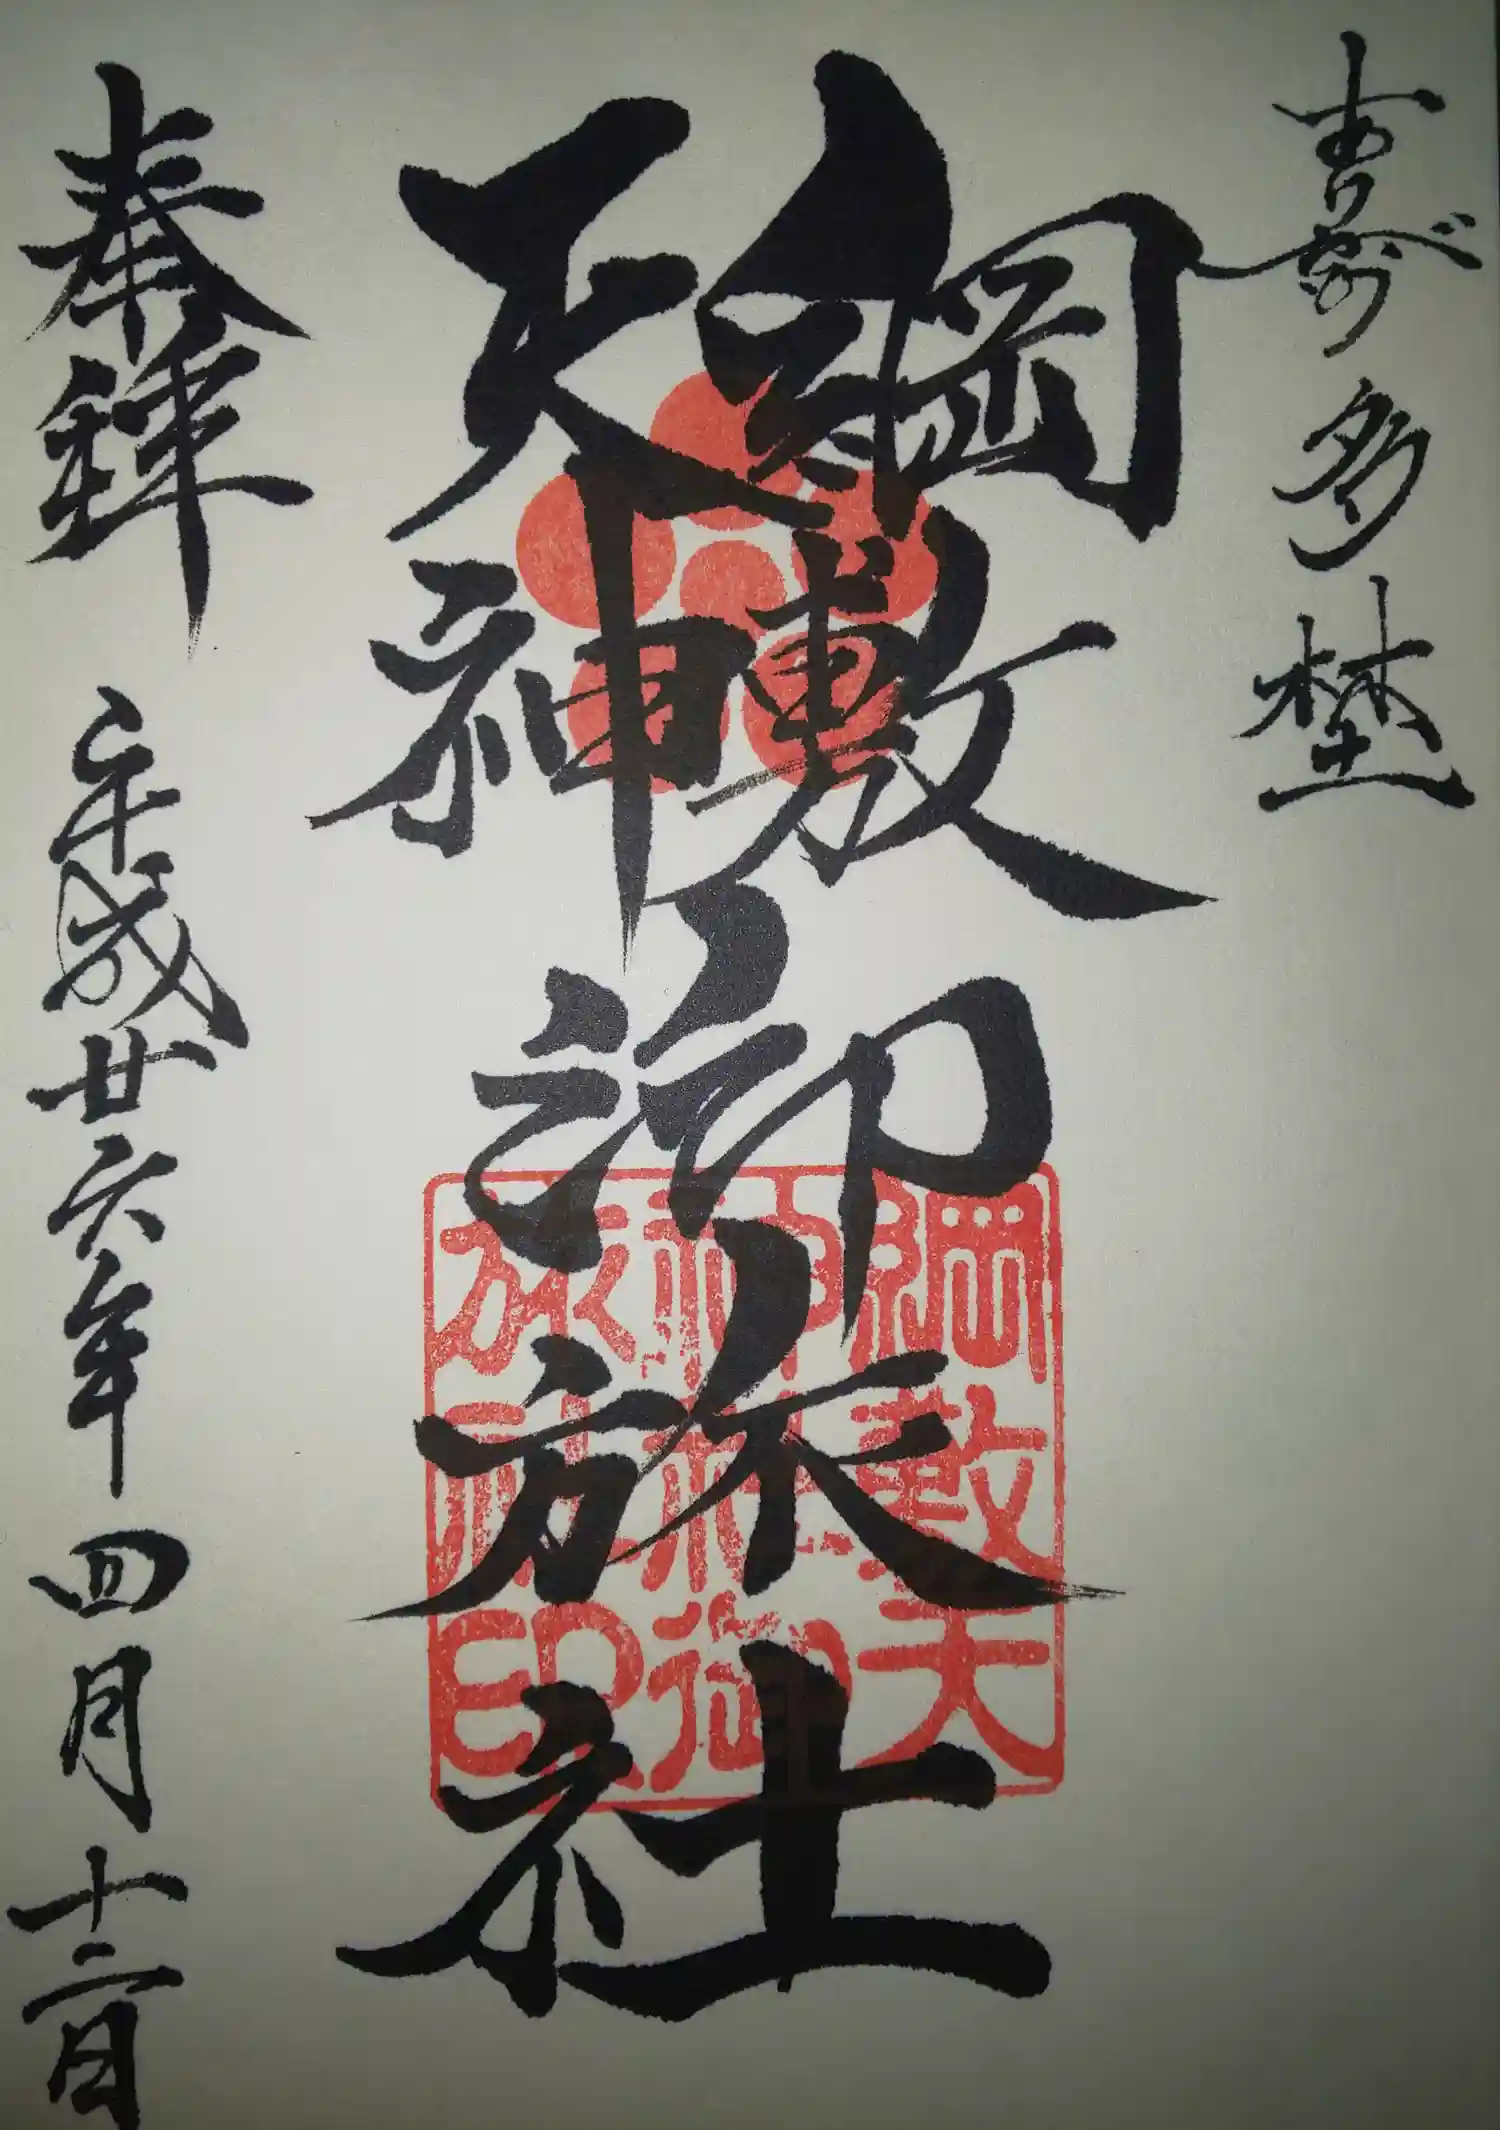 喜多埜
綱敷
天神
御旅社
綱敷天
神社御
旅社印
奉拜
平成廿六年四月十二日